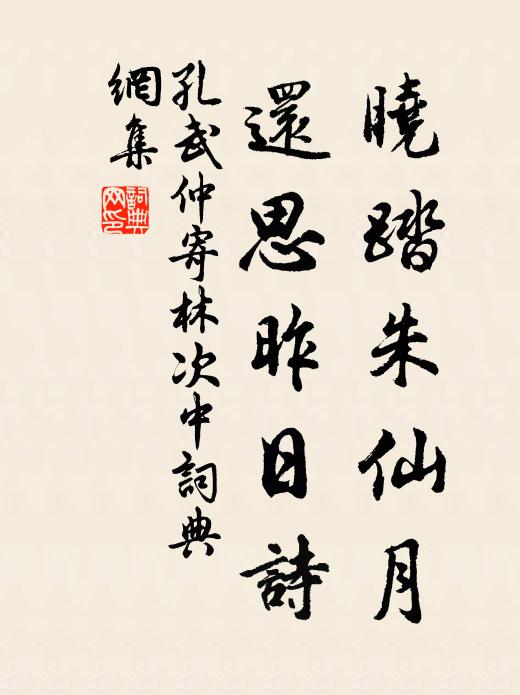 曉踏朱仙月
還思昨日詩
孔武仲寄林次中詞典
網集
詞典
网印